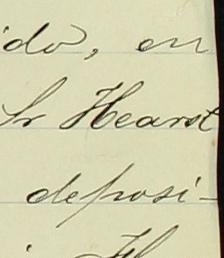 ido, en
Sr Hearst
deposi-